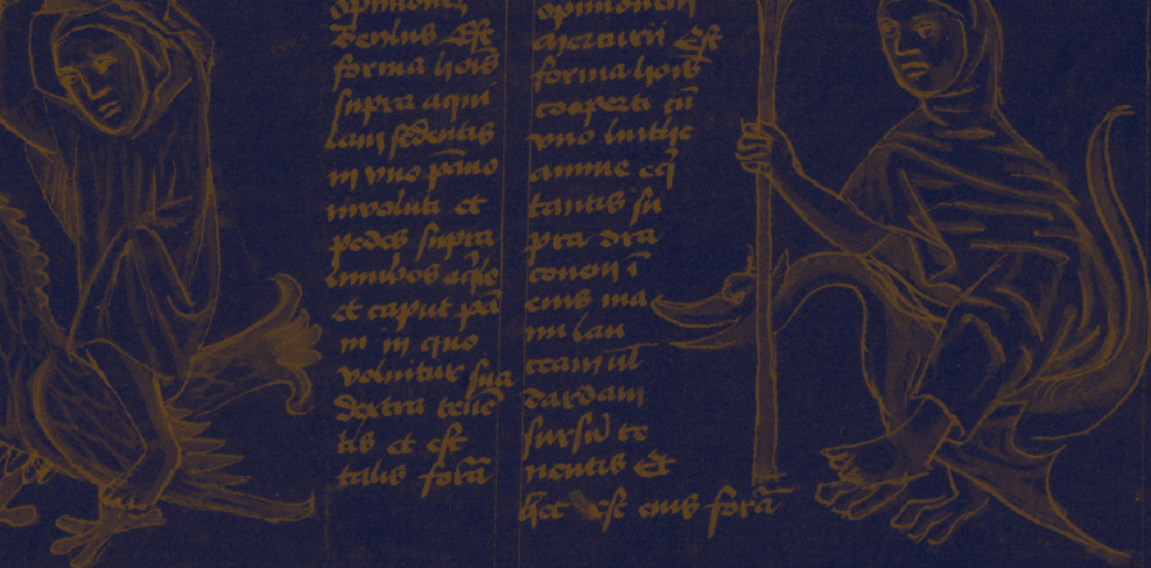 opiniones
venus Est
forma hoīs
supra aqui
lam sedentis
in vno pāno
involuti et
pedes supra
et caput pā
ni in quo
volvitur sua
dextra tenē
tis et est
talis forā
opinionem
mercurii Est
forma hois
cooperti cū
vno
tantis su
pra dra
conem ī
eius ma
nu lan
ceam ul
dardam
sursū te
nentis Et
hec est eius forā